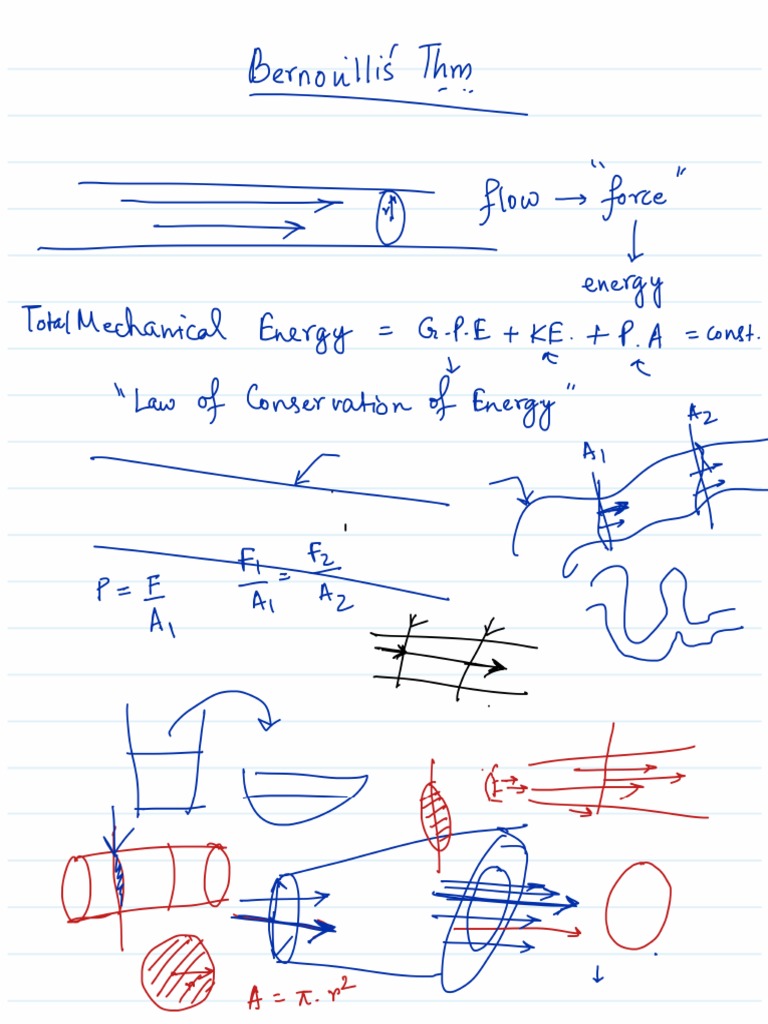 Bernouillis' Thm
r
flow → "force"
↓
energy
Total Mechanical Energy = G.P.E + KE. + P.A = const.
"Law of Conservation of Energy"
A1
A2
P = F/A1
F1/A1 = F2/A2
A = π.r²